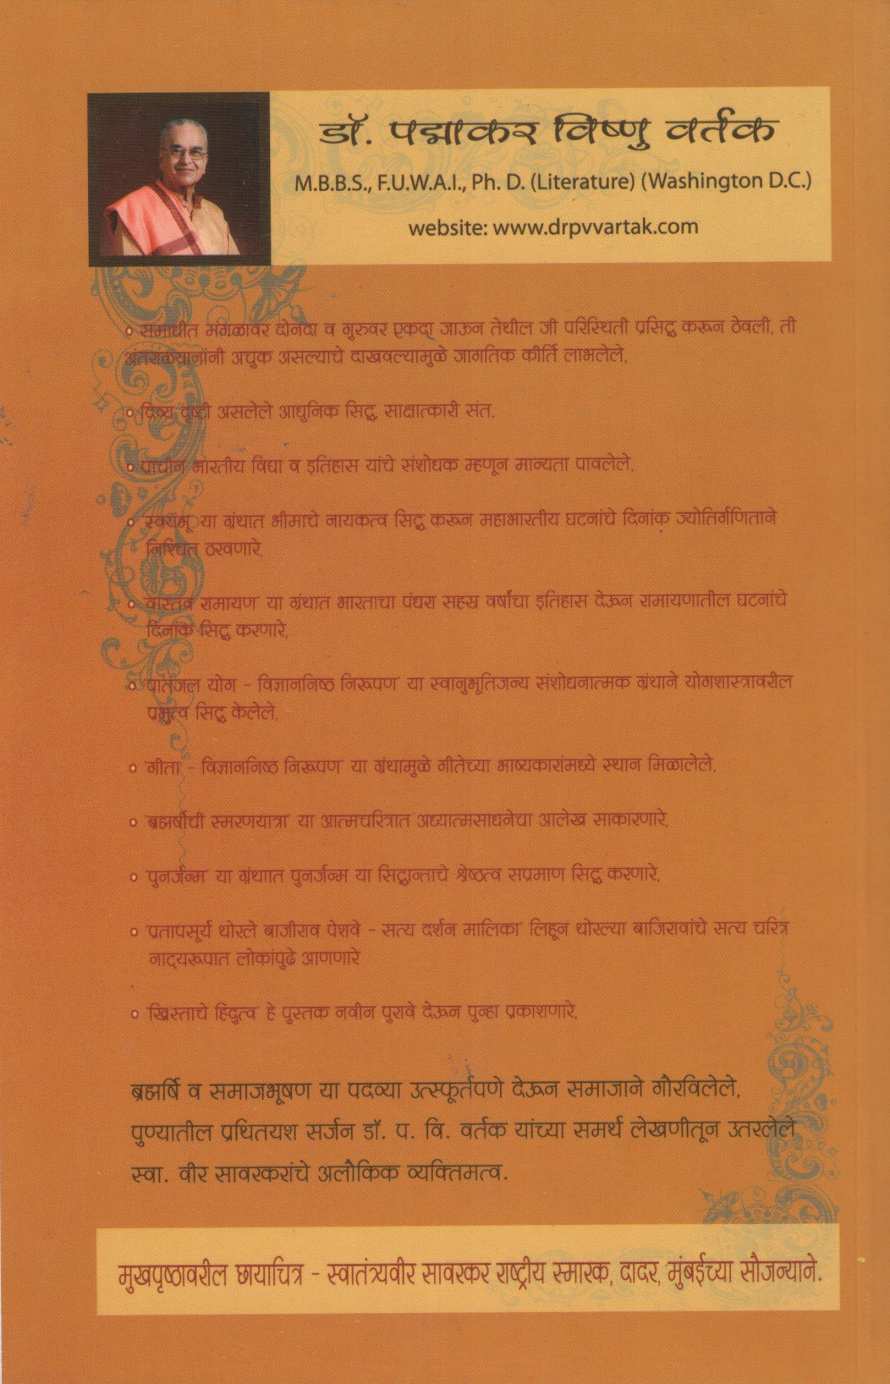 डॉ. पद्माकर विष्णु वर्तक
M.B.B.S., F.U.W.A.I., Ph. D. (Literature) (Washington D.C.)
website: www.drpvvartak.com
समाधीत मंगळावर दोनदा व गुरुवर एकदा जाऊन तेथील जी परिस्थिती प्रसिद्ध करून ठेवली, ती
अंतराळयानांनी अचुक असल्याचे दाखवल्यामुळे जागतिक कीर्ति लाभलेले.
दिव्य दृष्टी असलेले आधुनिक सिद्ध, साक्षात्कारी संत.
प्राचीन भारतीय विद्या व इतिहास यांचे संशोधक म्हणून मान्यता पावलेले.
'स्वयंभू' या ग्रंथात भीमाचे नायकत्व सिद्ध करून महाभारतीय घटनांचे दिनांक ज्योतिर्गणिताने
निश्चित ठरवणारे.
'वास्तव रामायण' या ग्रंथात भारताचा पंधरा सहस्र वर्षांचा इतिहास देऊन रामायणातील घटनांचे
दिनांक सिद्ध करणारे.
'पातंजल योग - विज्ञाननिष्ठ निरूपण' या स्वानुभूतिजन्य संशोधनात्मक ग्रंथाने योगशास्त्रावरील
प्रभुत्व सिद्ध केलेले.
'गीता - विज्ञाननिष्ठ निरूपण' या ग्रंथामुळे गीतेच्या भाष्यकारांमध्ये स्थान मिळालेले.
'ब्रह्मर्षींची स्मरणयात्रा' या आत्मचरित्रात अध्यात्मसाधनेचा आलेख साकारणारे.
'पुनर्जन्म' या ग्रंथाात पुनर्जन्म या सिद्धान्ताचे श्रेष्ठत्व सप्रमाण सिद्ध करणारे.
'प्रतापसूर्य थोरले बाजीराव पेशवे - सत्य दर्शन मालिका' लिहून थोरल्या बाजिरावांचे सत्य चरित्र
नाट्यरूपात लोकांपुढे आणणारे
'ख्रिस्ताचे हिंदुत्व' हे पुस्तक नवीन पुरावे देऊन पुन्हा प्रकाशणारे.
ब्रह्मर्षि व समाजभूषण या पदव्या उत्स्फूर्तपणे देऊन समाजाने गौरविलेले.
पुण्यातील प्रथितयश सर्जन डॉ. प. वि. वर्तक यांच्या समर्थ लेखणीतून उतरलेले
स्वा. वीर सावरकरांचे अलौकिक व्यक्तिमत्व.
मुखपृष्ठावरील छायाचित्र - स्वातंत्र्यवीर सावरकर राष्ट्रीय स्मारक, दादर, मुंबईच्या सौजन्याने.